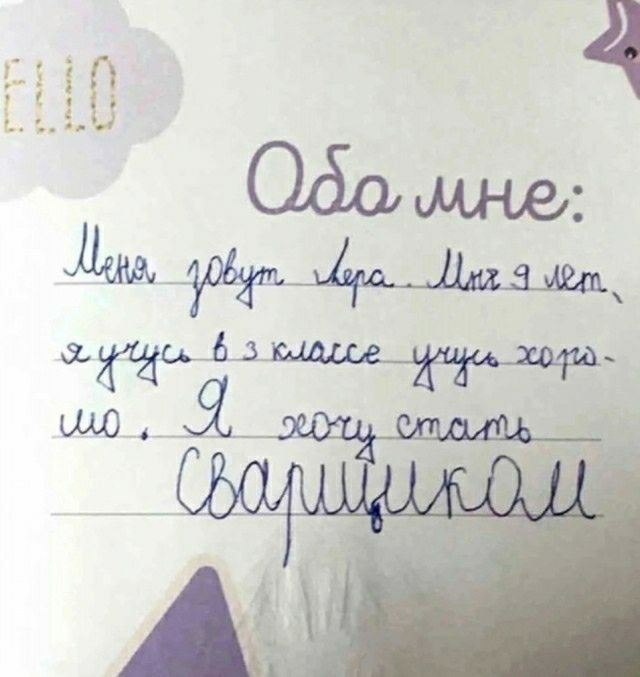 ELLO
Обо мне:
Меня зовут Лера. Мня 9 лет,
я учусь в 3 классе учусь хоро-
шо. Я хочу стать
Сварщиком